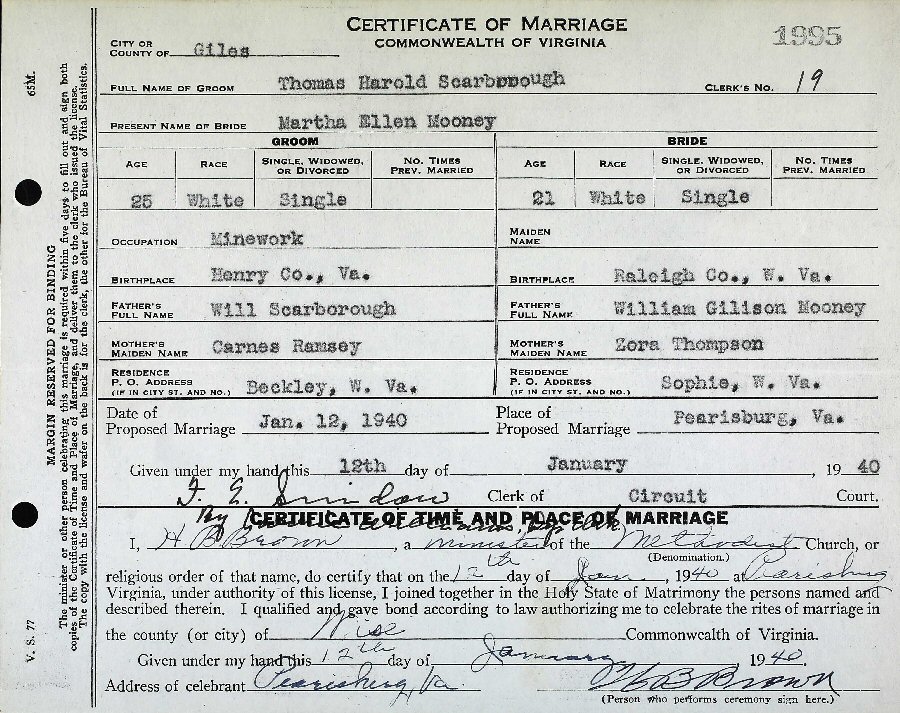 CERTIFICATE OF MARRIAGE
COMMONWEALTH OF VIRGINIA
1995
CITY OR
COUNTY OF Giles
FULL NAME OF GROOM Thomas Harold Scarborough CLERK'S NO. 19
PRESENT NAME OF BRIDE Martha Ellen Mooney
GROOM BRIDE
AGE RACE SINGLE, WIDOWED, OR DIVORCED NO. TIMES PREV. MARRIED AGE RACE SINGLE, WIDOWED, OR DIVORCED NO. TIMES PREV. MARRIED
25 White Single 21 White Single
OCCUPATION Minework MAIDEN NAME
BIRTHPLACE Henry Co., Va. BIRTHPLACE Raleigh Co., W. Va.
FATHER'S FULL NAME Will Scarborough FATHER'S FULL NAME William Gilison Mooney
MOTHER'S MAIDEN NAME Carnes Ramsey MOTHER'S MAIDEN NAME Zora Thompson
RESIDENCE P. O. ADDRESS (IF IN CITY ST. AND NO.) Beckley, W. Va. RESIDENCE P. O. ADDRESS (IF IN CITY ST. AND NO.) Sophie, W. Va.
Date of Proposed Marriage Jan. 12, 1940 Place of Proposed Marriage Pearisburg, Va.
Given under my hand this 12th day of January, 1940
F. E. Snidow Clerk of Circuit Court.
By
CERTIFICATE OF TIME AND PLACE OF MARRIAGE
I, H B Brown, a minister of the Methodist Church, or
(Denomination.)
religious order of that name, do certify that on the 12th day of Jan, 1940 at Pearisburg
Virginia, under authority of this license, I joined together in the Holy State of Matrimony the persons named and
described therein. I qualified and gave bond according to law authorizing me to celebrate the rites of marriage in
the county (or city) of Wise Commonwealth of Virginia.
Given under my hand this 12th day of January 1940.
Address of celebrant Pearisburg, Va. H B Brown
(Person who performs ceremony sign here.)
V. S. 77 MARGIN RESERVED FOR BINDING 65M.
The minister or other person celebrating this marriage is required within five days to fill out and sign both
copies of the Certificate of Time and Place of Marriage, and deliver them to the clerk who issued the license.
The copy with the license and wafer on the back is for the clerk, the other for the Bureau of Vital Statistics.